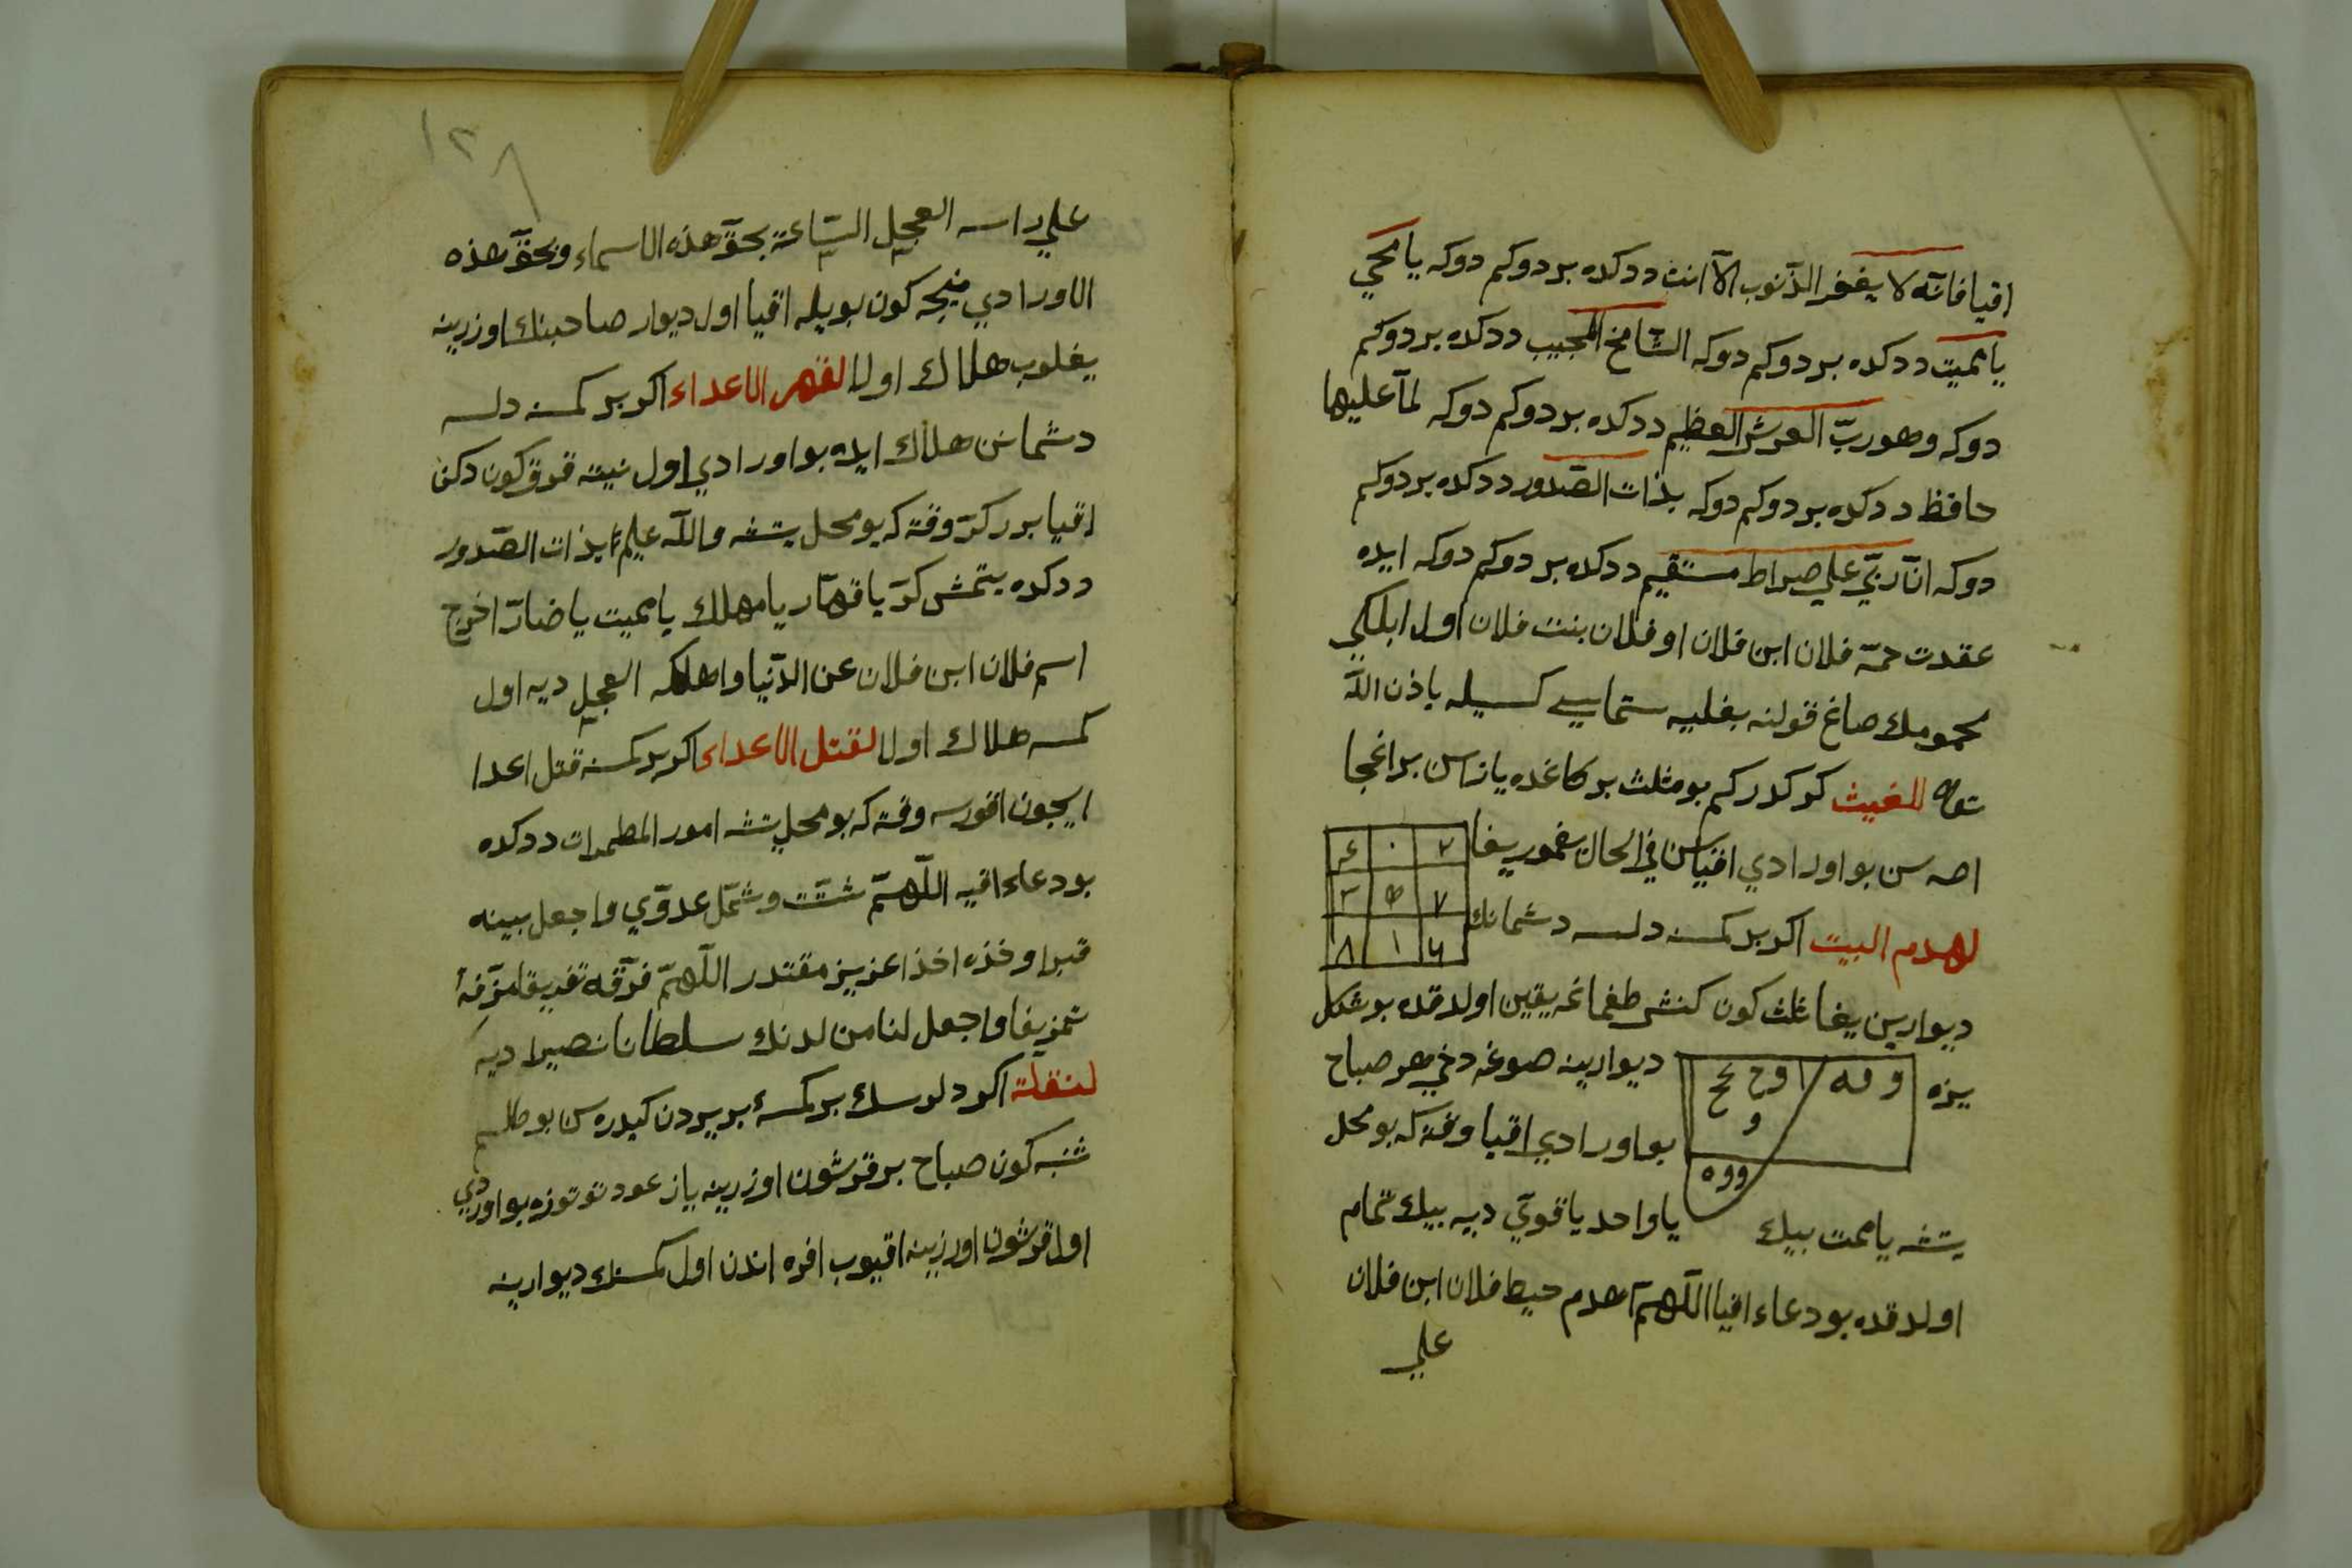 اقيا فانه لا يغفر الذنوب الا انت ددكده بر دوكم دوكه يا محيي
يا مميت ددكده بر دوكم دوكه الشامخ المجيب ددكده بر دوكم
دوكه وهو ربّ العرش العظيم ددكده بر دوكم دوكه لمّا عليها
حافظ ددكده بر دوكم دوكه بذات الصّدور ددكده بر دوكم
دوكه انّ ربّي علي صراط مستقيم ددكده بر دوكم دوكه ايده
عقدت حمّة فلان ابن فلان او فلان بنت فلان اول ابلكلي
محمومك صاغ قولنه بغليه ستماسي كسيله باذن اللّه
للغيث كركدركم بو مثلث بر كاغده يازاسن بر اغجا
اصه سن بو اورادي اقياسن في الحال يغمور يغا
٢ ٠ ع
٧ ٣
٦ ١ ٨
لهدم البيت اكر بر كمسنه دلسه دشمانك
ديوارين يغا ثلث كون كنش طغماغه يقين اولدقده بو شكل
يزه ديوارينه صوغه دخي هر صباح
بو اورادي اقيا وقته كه بو محل
يتشه يا مميت بيك يا واحد يا قويّ ديه بيك تمام
اولدقده بو دعاء اقيا اللّهمّ اهدم حيط فلان ابن فلان
علي
١٢٨
علي راسه العجل السّاعة بحقّ هذه الاسماء وبحقّ هذه
الاورادي نيجه كون بويله اقيا اول ديوار صاحبنك اوزرينه
يغلوب هلاك اولا لقهر الاعداء اكر بر كمسنه دلسه
دشمانن هلاك ايده بو اورادي اول نيته قرق كون دكن
اقيا برر كرّ وقته كه بو محل يتشه واللّه عليم بذات الصّدور
ددكده يتمش كرّ يا قهّار يا مهلك يا مميت يا ضارّ اخرج
اسم فلان ابن فلان عن الدّنيا واهلكه العجل ديه اول
كمسه هلاك اولا لقتل الاعداء اكر بر كمسنه قتل اعدا
ايچون اقورسه وقته كه بو محل يتشه امور المطهرات ددكده
بو دعاء اقيه اللّهمّ شتّت وشمّل عدوّي واجعل بيته
قبرا وخذه اخذا عزيز مقتدر اللّهمّ فرّقه تفريقا مزّقهُ
تمزيقا واجعل لنا من لدنك سلطانا نصيرا ديه
لنقلة اكر دلرسك بر كمسهٔ بر يردن كيدره سن بو طلسم
شنبه كون صباح بر قرشون اوزرينه ياز عود توتوزه بو اورادي
اول قرشون اوزرينه اقيوب افره اندن اول كمسنك ديوارينه